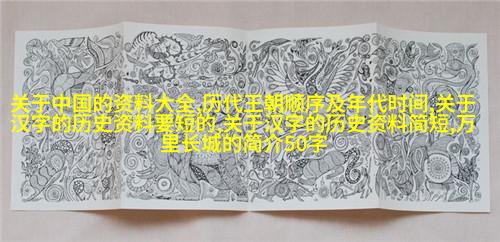 关于中国的资料大全,历代王朝顺序及年代时间,关于
汉字的历史资料要短的,关于汉字的历史资料简短,万
里长城的简介50字